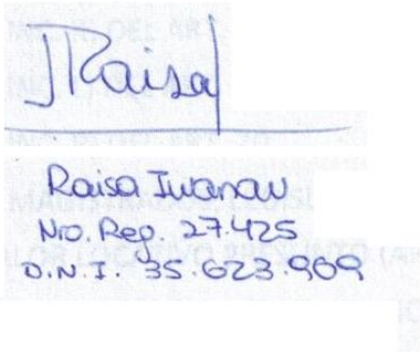 Raisa
Raisa Iwanow
Nro. Reg. 27.425
D.N.I. 35.623.969